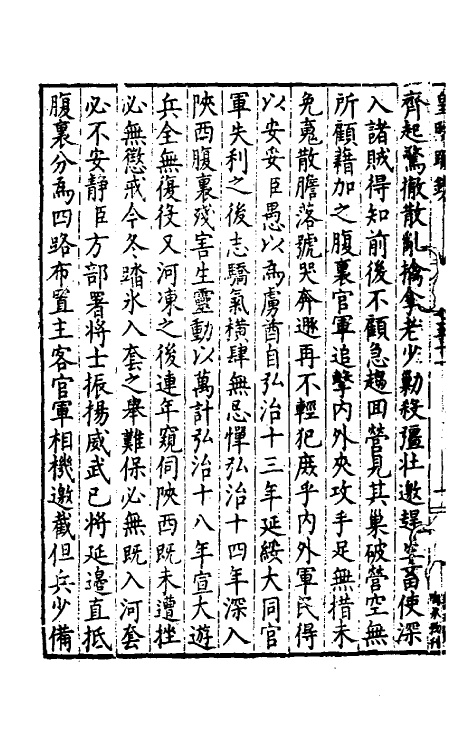 齊起驚徹散亂擒拿老少勦殺彊壯邀趕孳畜使深
入諸賊得知前後不顧急趨回營見其巢破營空無
所顧藉加之腹裏官軍追擊內外夾攻手足無措未
免䰟散膽落號哭奔遯再不輕犯庻乎內外軍民得
以安妥臣愚以為虜酋自弘治十三年延綏大同官
軍失利之後志驕氣橫肆無忌憚弘治十四年深入
陜西腹裏殘害生靈動以萬計弘治十八年宣大遊
兵全無復役又河凍之後連年窺伺陜西既未遭挫
必無懲戒今冬踏氷入套之舉難保必無既入河套
必不安静臣方部署將士振揚威武已將延邊直抵
腹裏分為四路布置主客官軍相機邀截但兵少備